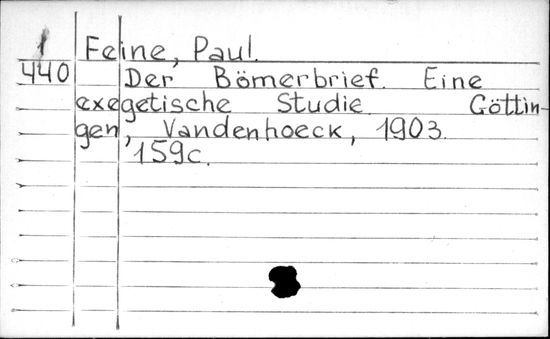 1 Feine, Paul.
440 Der Bömerbrief. Eine
exegetische Studie. Göttin-
gen, Vandenhoeck, 1903.
159c.